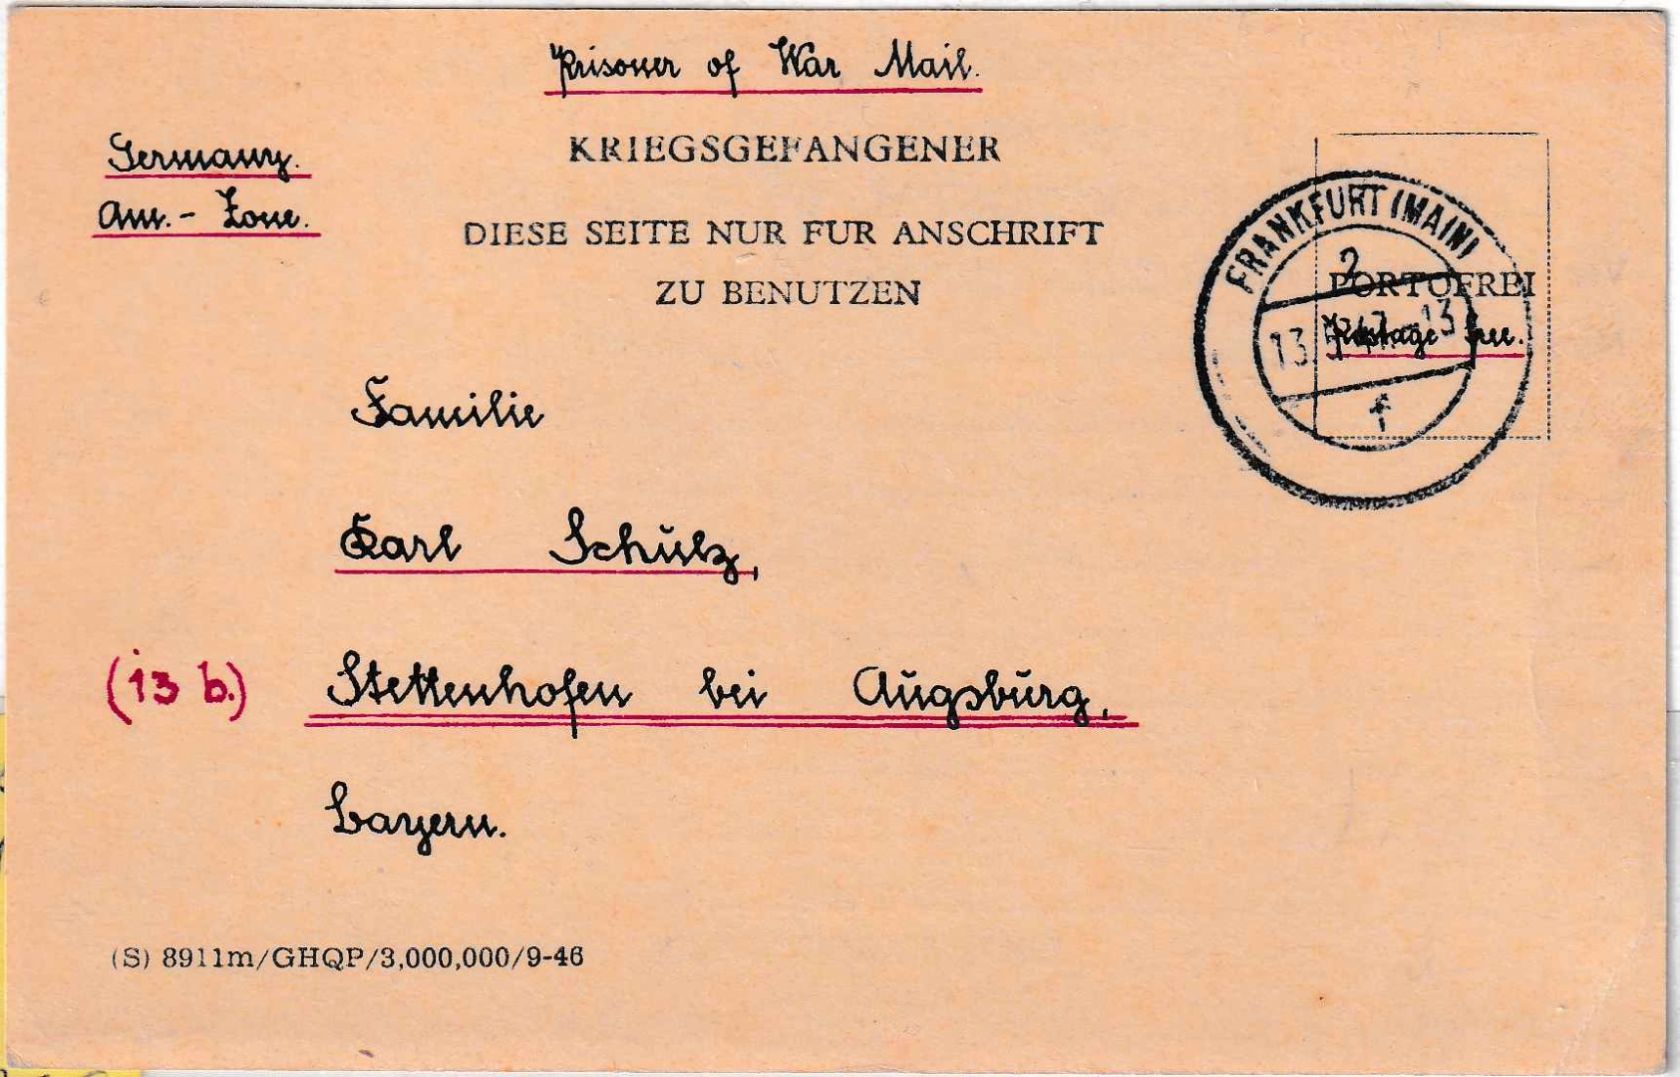 Prisoner of War Mail.
KRIEGSGEFANGENER
Germany.
Am.- Zone.
DIESE SEITE NUR FUR ANSCHRIFT
ZU BENUTZEN
FRANKFURT (MAIN)
2
PORTOFREI
Postage free.
13
f
Familie
Karl Schŭlz,
(13 b.) Stettenhofen bei Aŭgsbŭrg,
Bayern.
(S) 8911m/GHQP/3,000,000/9-46